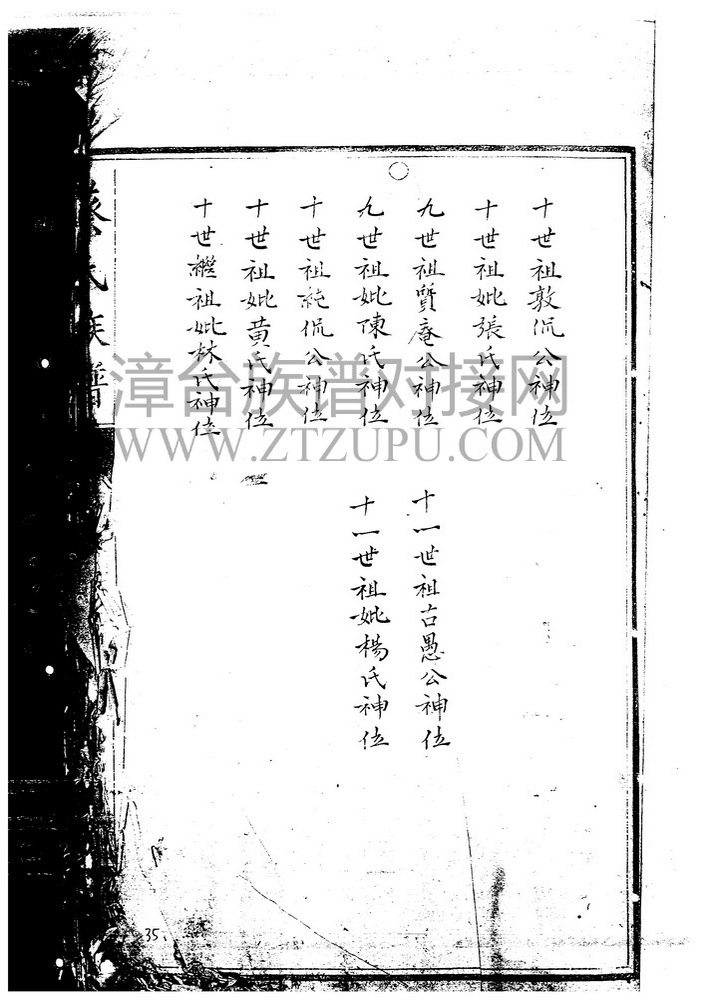 十世祖敦侃公神位
十世祖妣張氏神位
九世祖質庵公神位
九世祖妣陳氏神位
十世祖純侃公神位
十世祖妣黄氏神位
十世繼祖妣林氏神位
十一世祖古愚公神位
十一世祖妣楊氏神位
氏族譜
漳台族谱对接网
WWW.ZTZUPU.COM
35